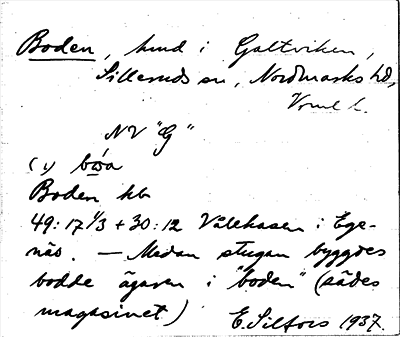 Boden, hmd i Galtviken,
Silleruds sn, Nordmarks hd,
Vrml. l.
NV "G"
(i) bωa
Boden hb
49:17 1/3 + 30:12 Vålehasen i Ege-
näs. — Medan stugan byggdes
bodde ägaren i "boden" (sädes
magasinet)
E. Silfors 1937.